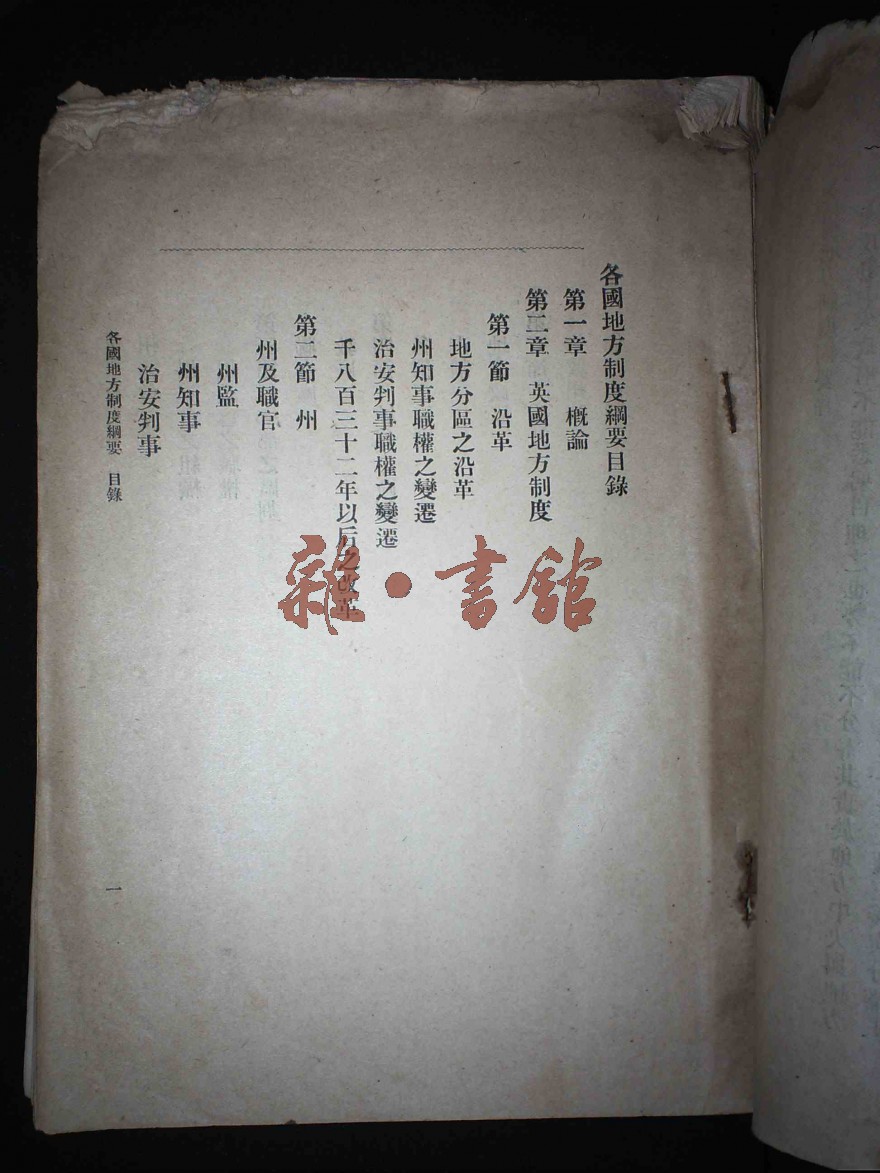 各國地方制度綱要目錄
第一章　概論
第二章　英國地方制度
第一節　沿革
地方分區之沿革
州知事職權之變遷
治安判事職權之變遷
千八百三十二年以后之改革
第二節　州
州及職官
州監
州知事
治安判事
各國地方制度綱要　目錄
一
雜·書館